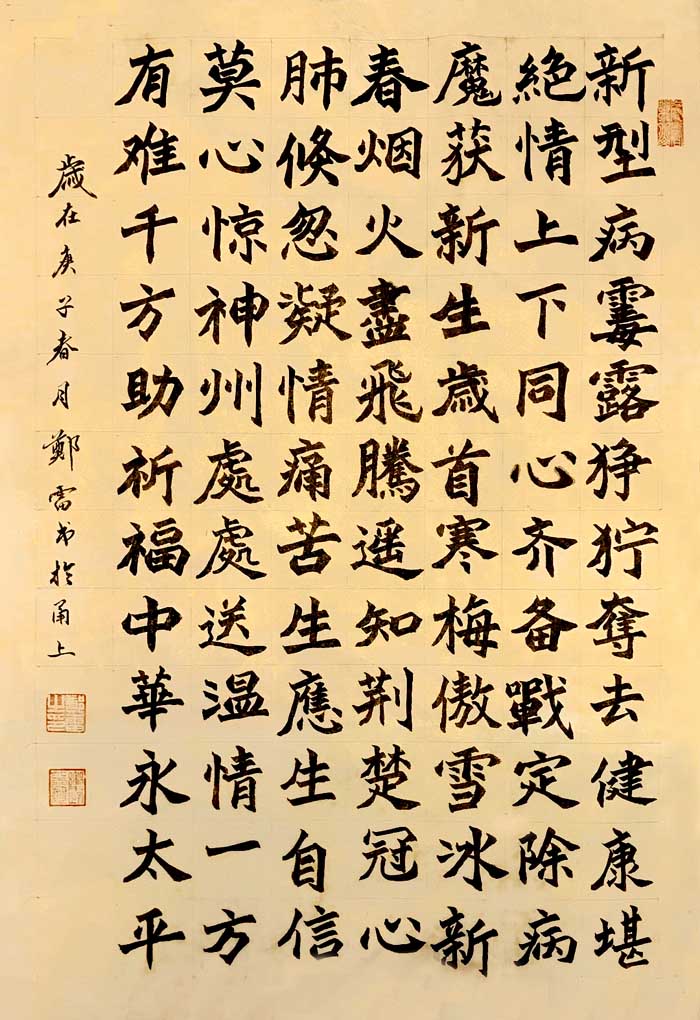 新型病霉露狰狞奪去健康堪
絕情上下同心齐备戰定除病
魔获新生歲首寒梅傲雪冰新
春烟火盡飛騰遥知荆楚冠心
肺倏忽凝情痛苦生應生自信
莫心惊神州處處送温情一方
有难千方助祈福中華永太平
歲在庚子春月鄭雷书於甬上